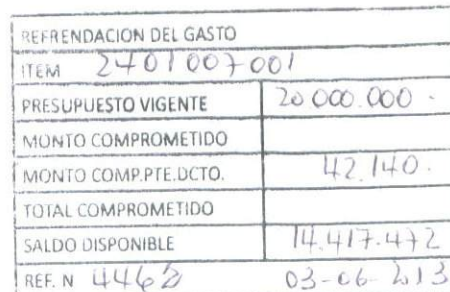 REFRENDACION DEL GASTO
ITEM 2401007001
PRESUPUESTO VIGENTE 20.000.000.-
MONTO COMPROMETIDO
MONTO COMP.PTE.DCTO. 42.140.-
TOTAL COMPROMETIDO
SALDO DISPONIBLE 14.417.472
REF. N 03-06-2013